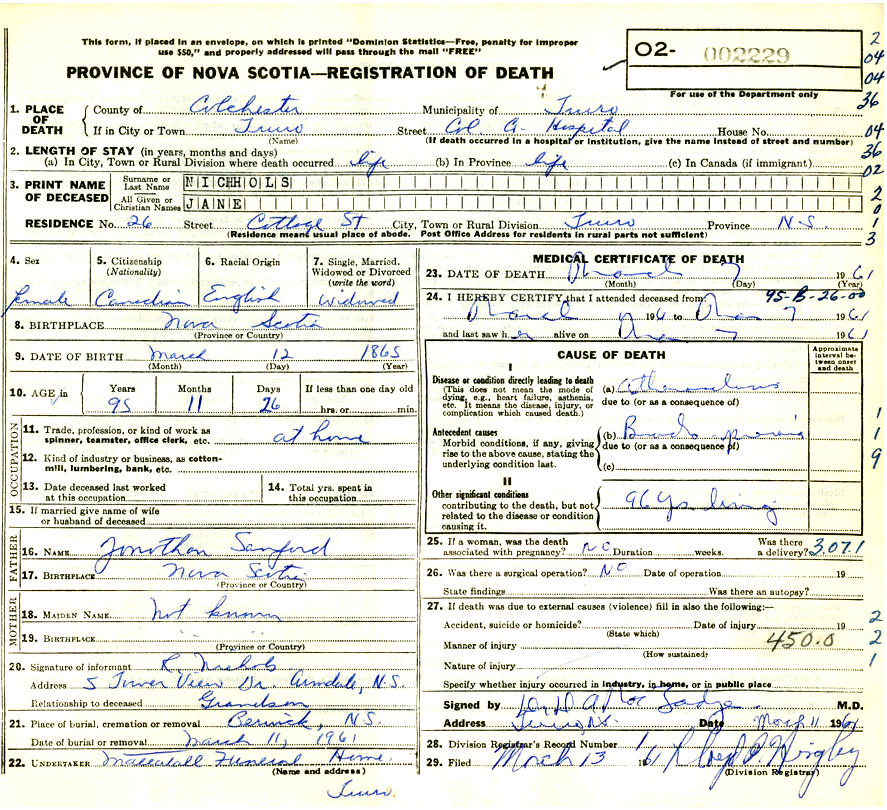 This form, if placed in an envelope, on which is printed "Dominion Statistics—Free, penalty for improper
use $50," and properly addressed will pass through the mail "FREE"
O2- 002229
PROVINCE OF NOVA SCOTIA—REGISTRATION OF DEATH
For use of the Department only
2
04
04
36
04
36
02
2
0
1
3
1. PLACE OF DEATH
County of Colchester Municipality of Truro
If in City or Town Truro Street Col. Co. Hospital House No.
(Name) (If death occurred in a hospital or institution, give the name instead of street and number)
2. LENGTH OF STAY (in years, months and days)
(a) In City, Town or Rural Division where death occurred life (b) In Province life (c) In Canada (if immigrant)
3. PRINT NAME OF DECEASED
Surname or Last Name NICHOLS
All Given or Christian Names JANE
RESIDENCE No. 26 Street Cottage St City, Town or Rural Division Truro Province N-S.
(Residence means usual place of abode. Post Office Address for residents in rural parts not sufficient)
4. Sex female
5. Citizenship (Nationality) Canadian
6. Racial Origin English
7. Single, Married, Widowed or Divorced (write the word) widowed
8. BIRTHPLACE Nova Scotia
(Province or Country)
9. DATE OF BIRTH March 12 1865
(Month) (Day) (Year)
10. AGE in Years 95 Months 11 Days 26 If less than one day old hrs. or min.
OCCUPATION
11. Trade, profession, or kind of work as spinner, teamster, office clerk, etc. at home
12. Kind of industry or business, as cotton-mill, lumbering, bank, etc.
13. Date deceased last worked at this occupation
14. Total yrs. spent in this occupation
15. If married give name of wife or husband of deceased
FATHER
16. NAME Jonothan Sanford
17. BIRTHPLACE Nova Scotia
(Province or Country)
MOTHER
18. MAIDEN NAME Not known
19. BIRTHPLACE
(Province or Country)
20. Signature of informant R. Nichols
Address 5 Tower View Dr. Armdale, N.S.
Relationship to deceased Grandson
21. Place of burial, cremation or removal Berwick, N.S.
Date of burial or removal March 11, 1961
22. UNDERTAKER Mattatall Funeral Home.
(Name and address)
Truro.
MEDICAL CERTIFICATE OF DEATH
23. DATE OF DEATH March 7 1961
(Month) (Day) (Year)
24. I HEREBY CERTIFY that I attended deceased from 95-B-26-00
March 1961 to Mar 7 1961
and last saw her alive on Mar 7 1961
CAUSE OF DEATH
Approximate interval between onset and death
I
Disease or condition directly leading to death
(This does not mean the mode of dying, e.g., heart failure, asthenia, etc. It means the disease, injury, or complication which caused death.)
(a)
due to (or as a consequence of)
Antecedent causes
Morbid conditions, if any, giving rise to the above cause, stating the underlying condition last.
(b)
due to (or as a consequence of)
(c)
II
Other significant conditions
contributing to the death, but not related to the disease or condition causing it.
96 Yrs living
1
1
9
25. If a woman, was the death associated with pregnancy? NO Duration weeks. Was there a delivery? 3071
26. Was there a surgical operation? NO Date of operation 19
State findings Was there an autopsy?
27. If death was due to external causes (violence) fill in also the following:—
Accident, suicide or homicide? Date of injury 19
(State which)
Manner of injury 450.0
(How sustained)
Nature of injury
Specify whether injury occurred in industry, in home, or in public place
2
2
1
Signed by M.D.
Address Truro N.S. Date March 11 1961
28. Division Registrar's Record Number
29. Filed March 13 1961
(Division Registrar)